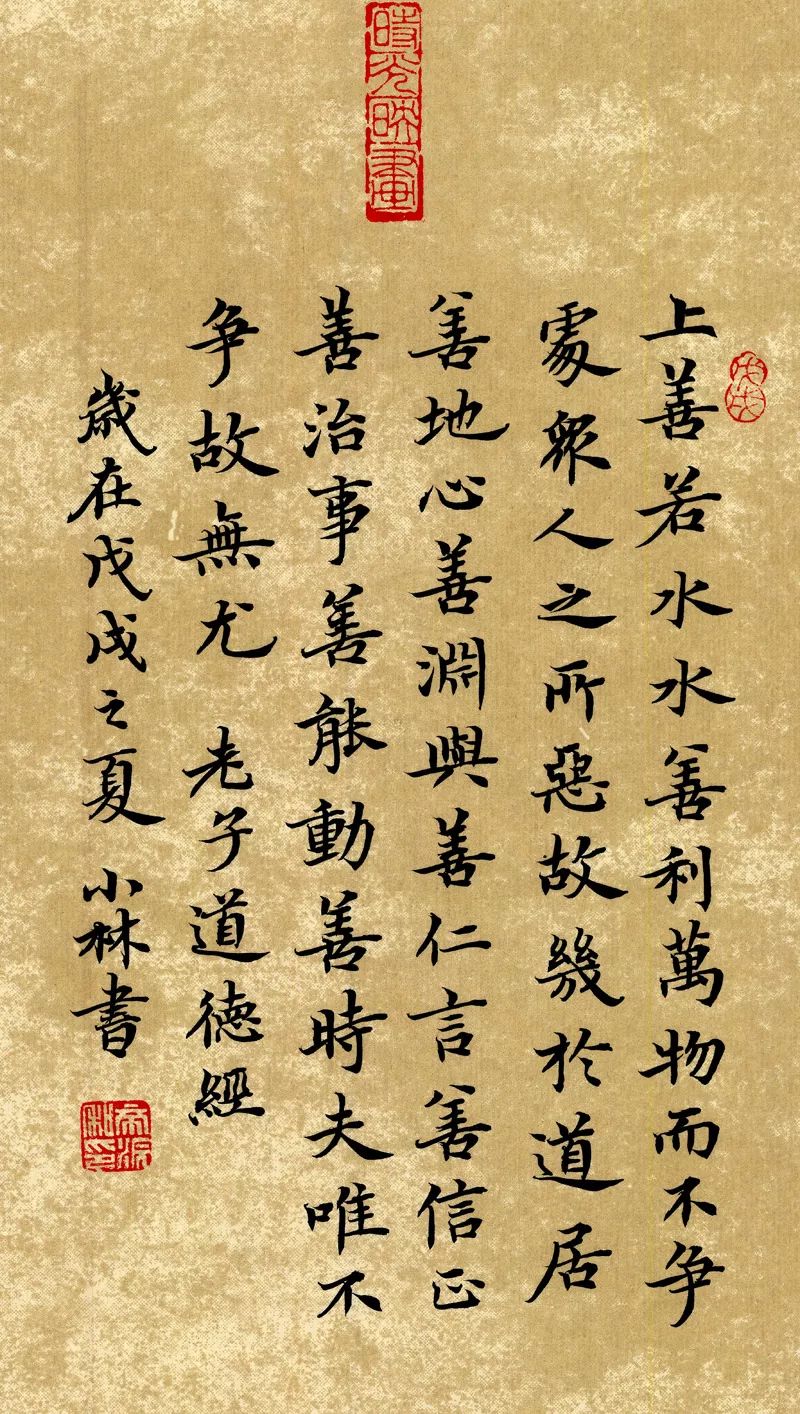 時光映畫
戊戌
上善若水水善利萬物而不争
處眾人之所惡故幾於道居
善地心善淵與善仁言善信正
善治事善能動善時夫唯不
争故無尤 老子道德經
歲在戊戌之夏 小林書